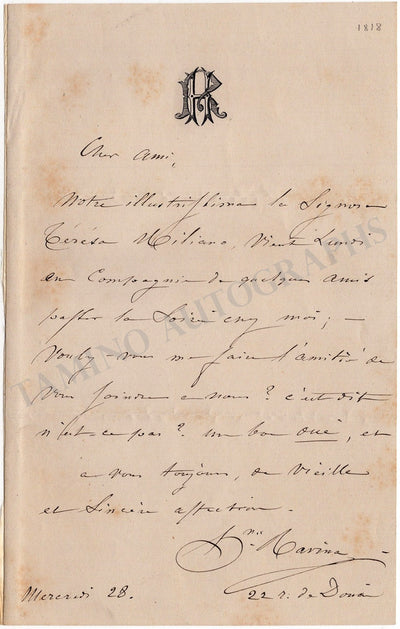 1818
HR
Cher Ami,
Notre illustrissime la Signora
Térésa Miliano, vient Lundi
en Compagnie de quelques amis
passer la soirée chez moi; —
Voulez-vous me faire l'amitié de
vous joindre a nous? c'est dit
n'est-ce pas? un bon oui, et
a vous toujours, de vieille
et Sincère affection.
Ravina
Mercredi 28.
22 r. de Douai
TAMINO AUTOGRAPHS